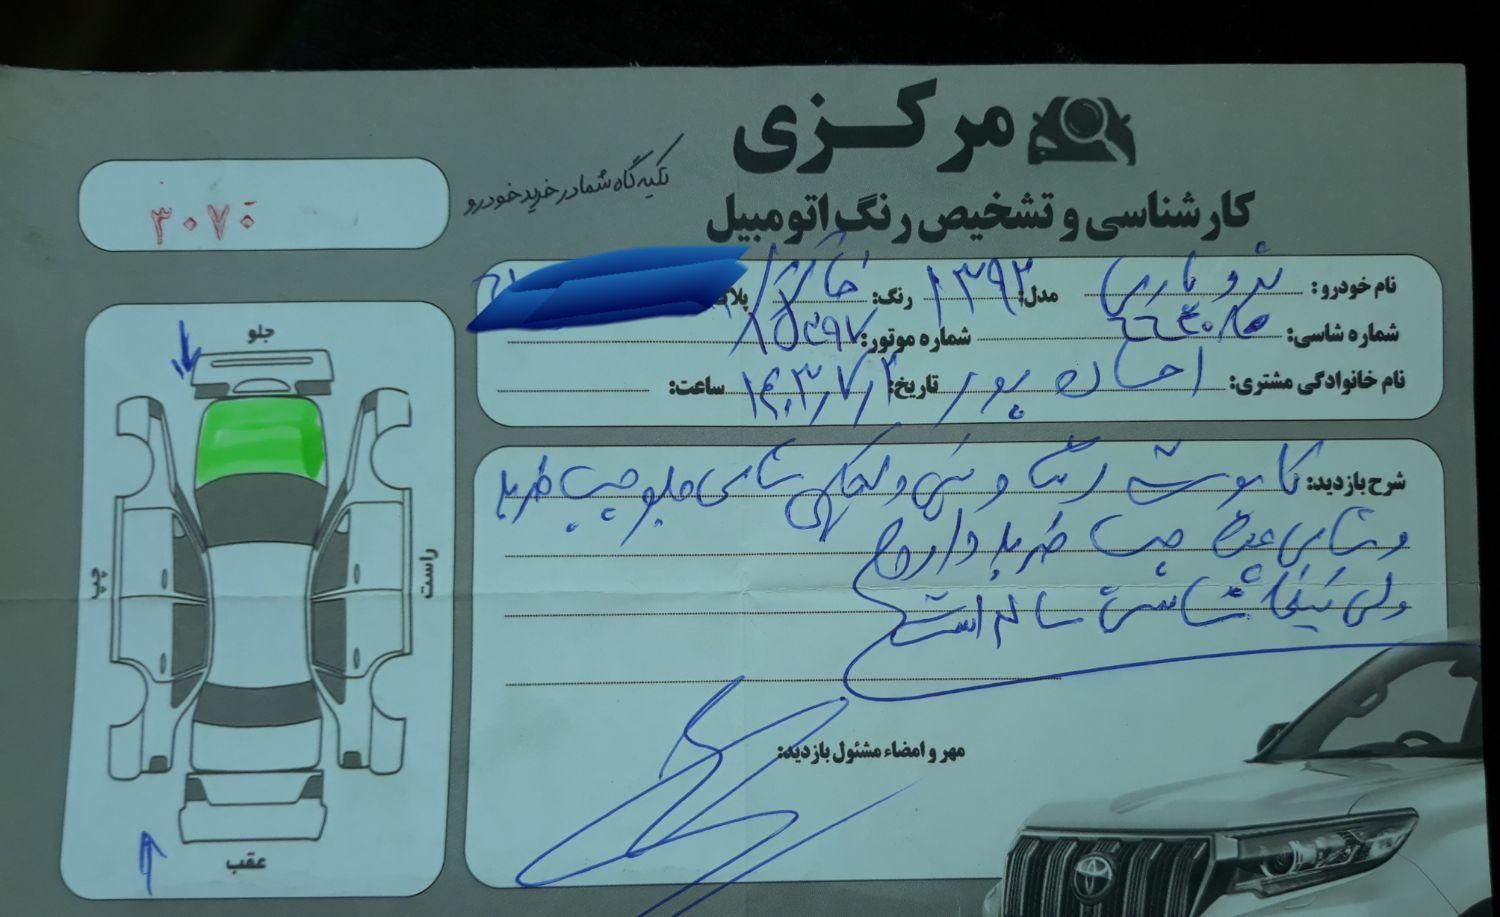 مرکزی
کارشناسی و تشخیص رنگ اتومبیل
تکیه گاه شما در خرید خودرو
۳۰۷۰
نام خودرو: پژو پارس مدل: ۱۳۹۲ رنگ: خاکستری پلاک
شماره شاسی: شماره موتور:
نام خانوادگی مشتری: احسان پور تاریخ: ۱۴۰۳/۷/۲ ساعت:
شرح بازدید: کاپوت رنگ و شاسی جلو چپ ضربه
و شاسی عقب چپ ضربه دارد
ولی شاسی سالم است
مهر و امضاء مسئول بازدید:
جلو
چپ
راست
عقب